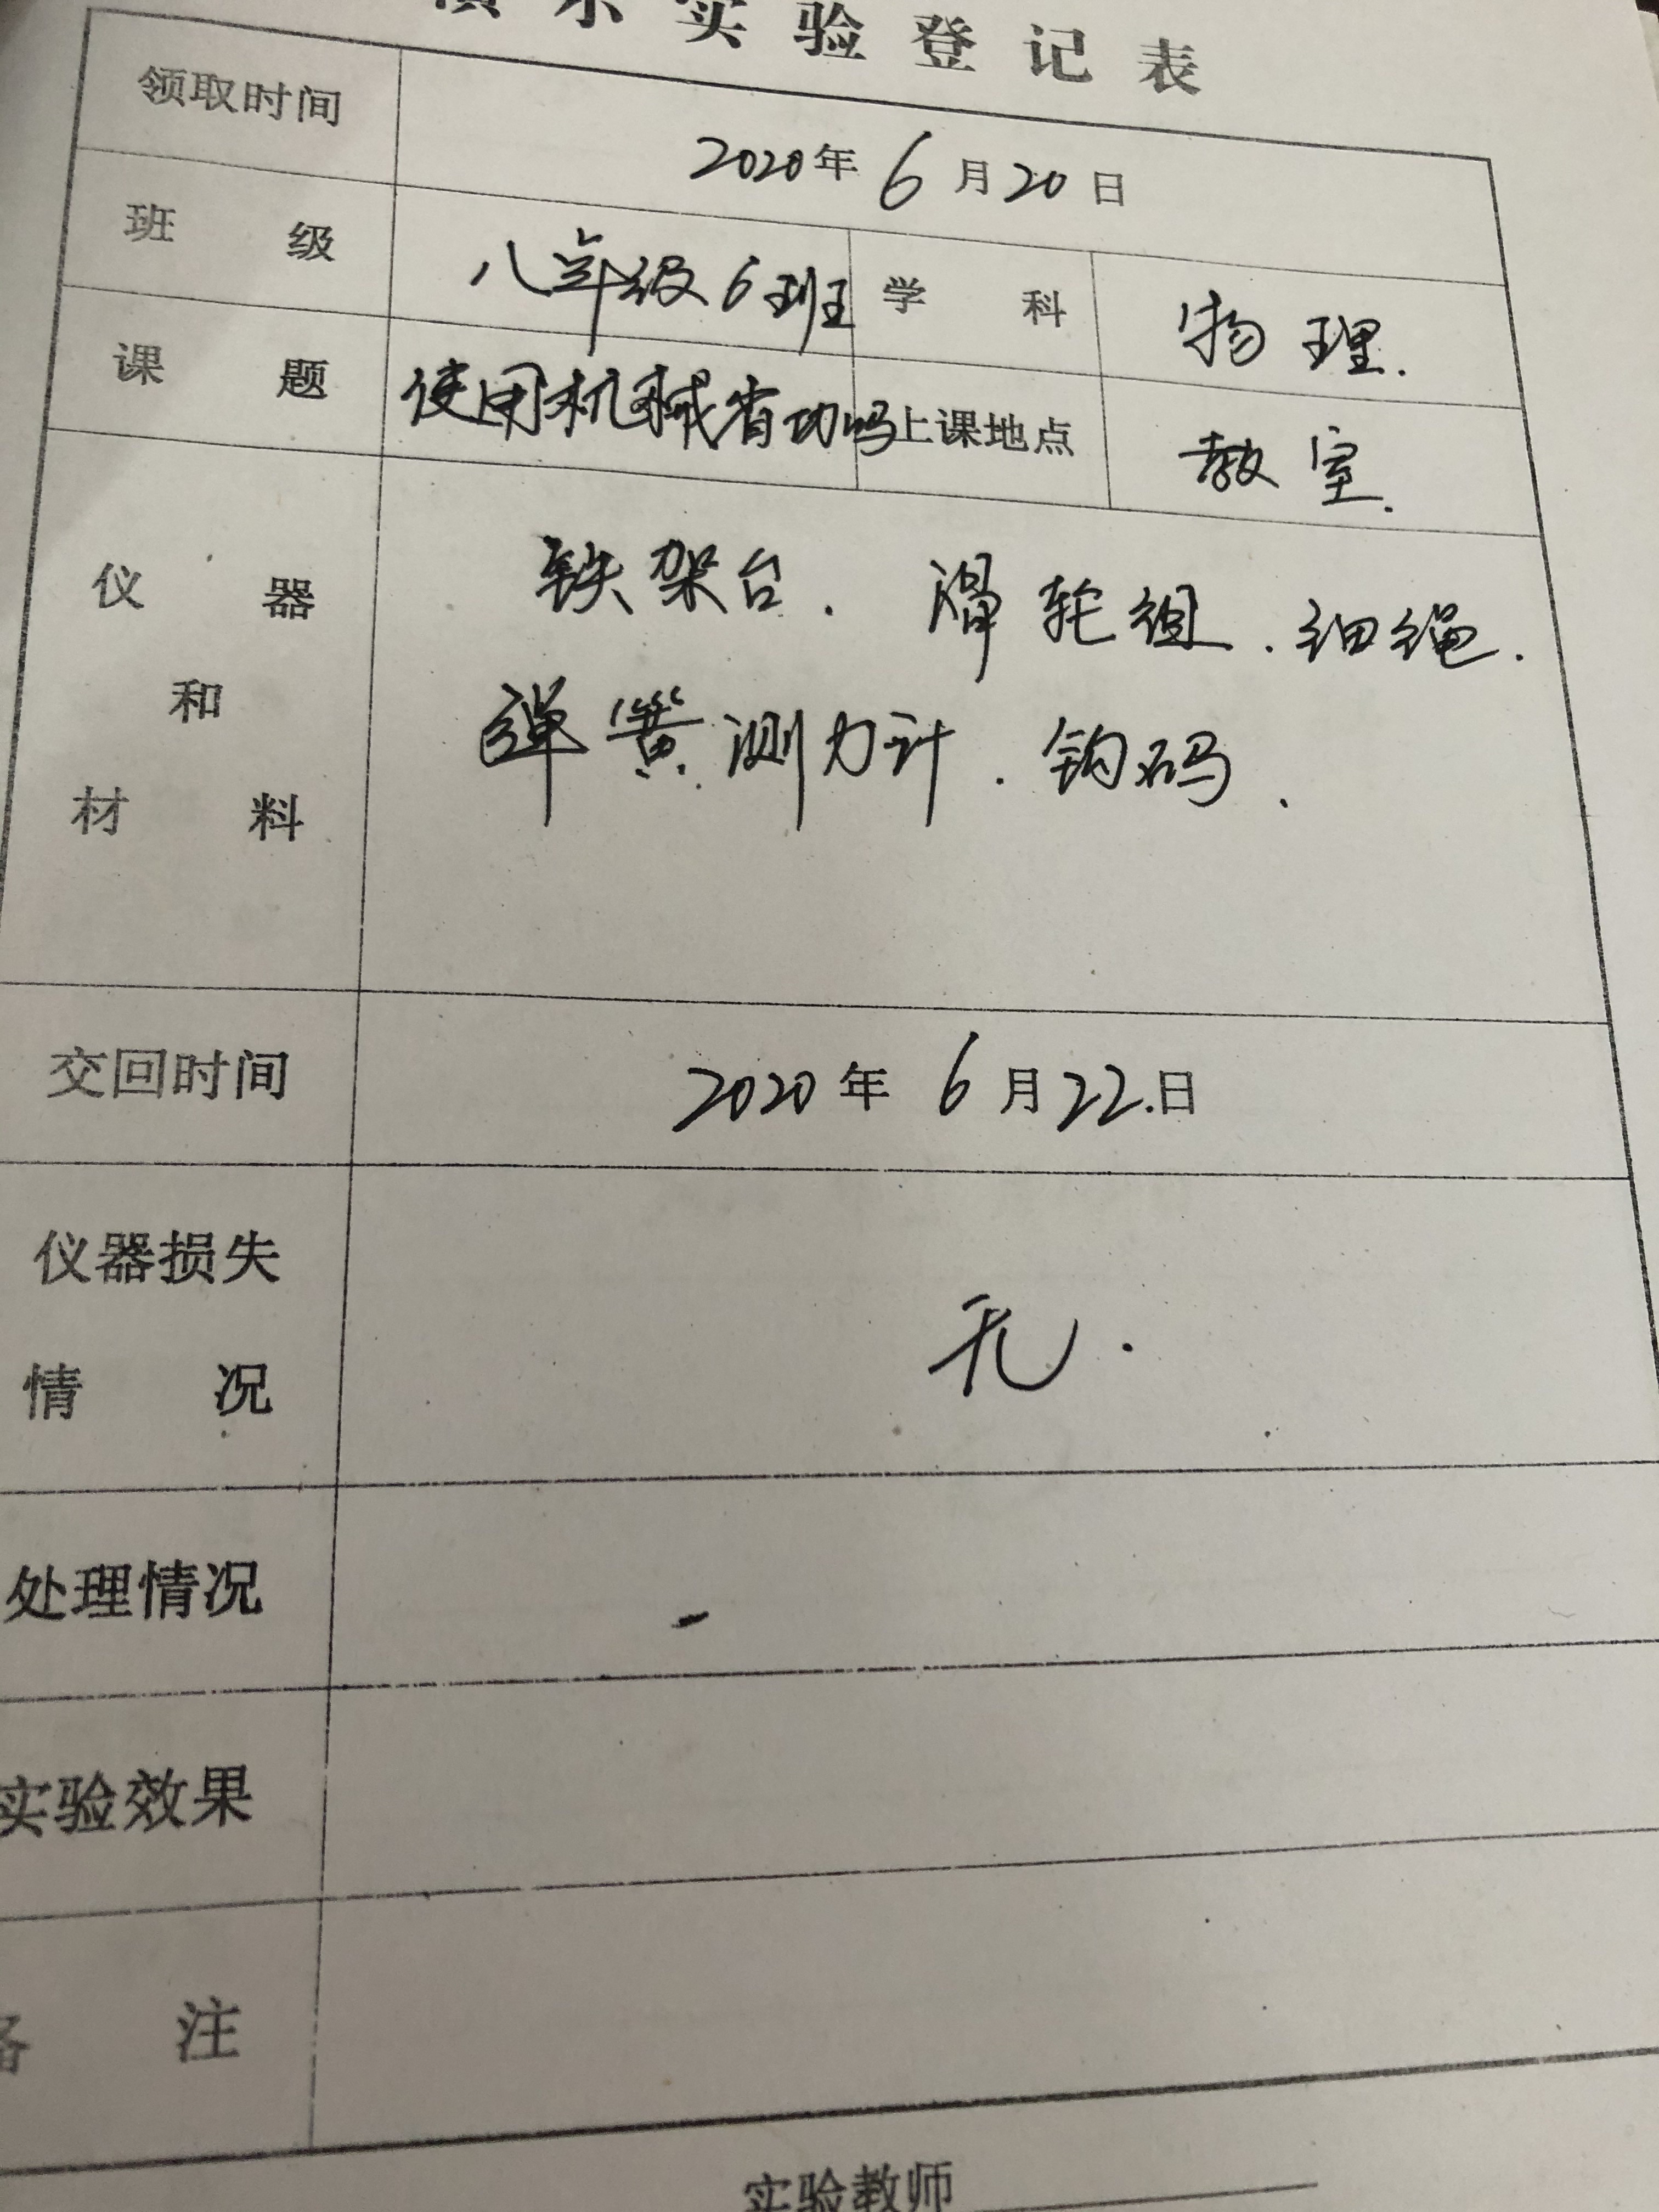 演示实验登记表
领取时间 2020年6月20日
班级 八年级6班 学科 物理.
课题 使用机械省功吗 上课地点 教室.
仪器 铁架台. 滑轮组. 细绳.
和 弹簧测力计. 钩码.
材料
交回时间 2020年6月22.日
仪器损失
情况 无.
处理情况 -
实验效果
备注
实验教师